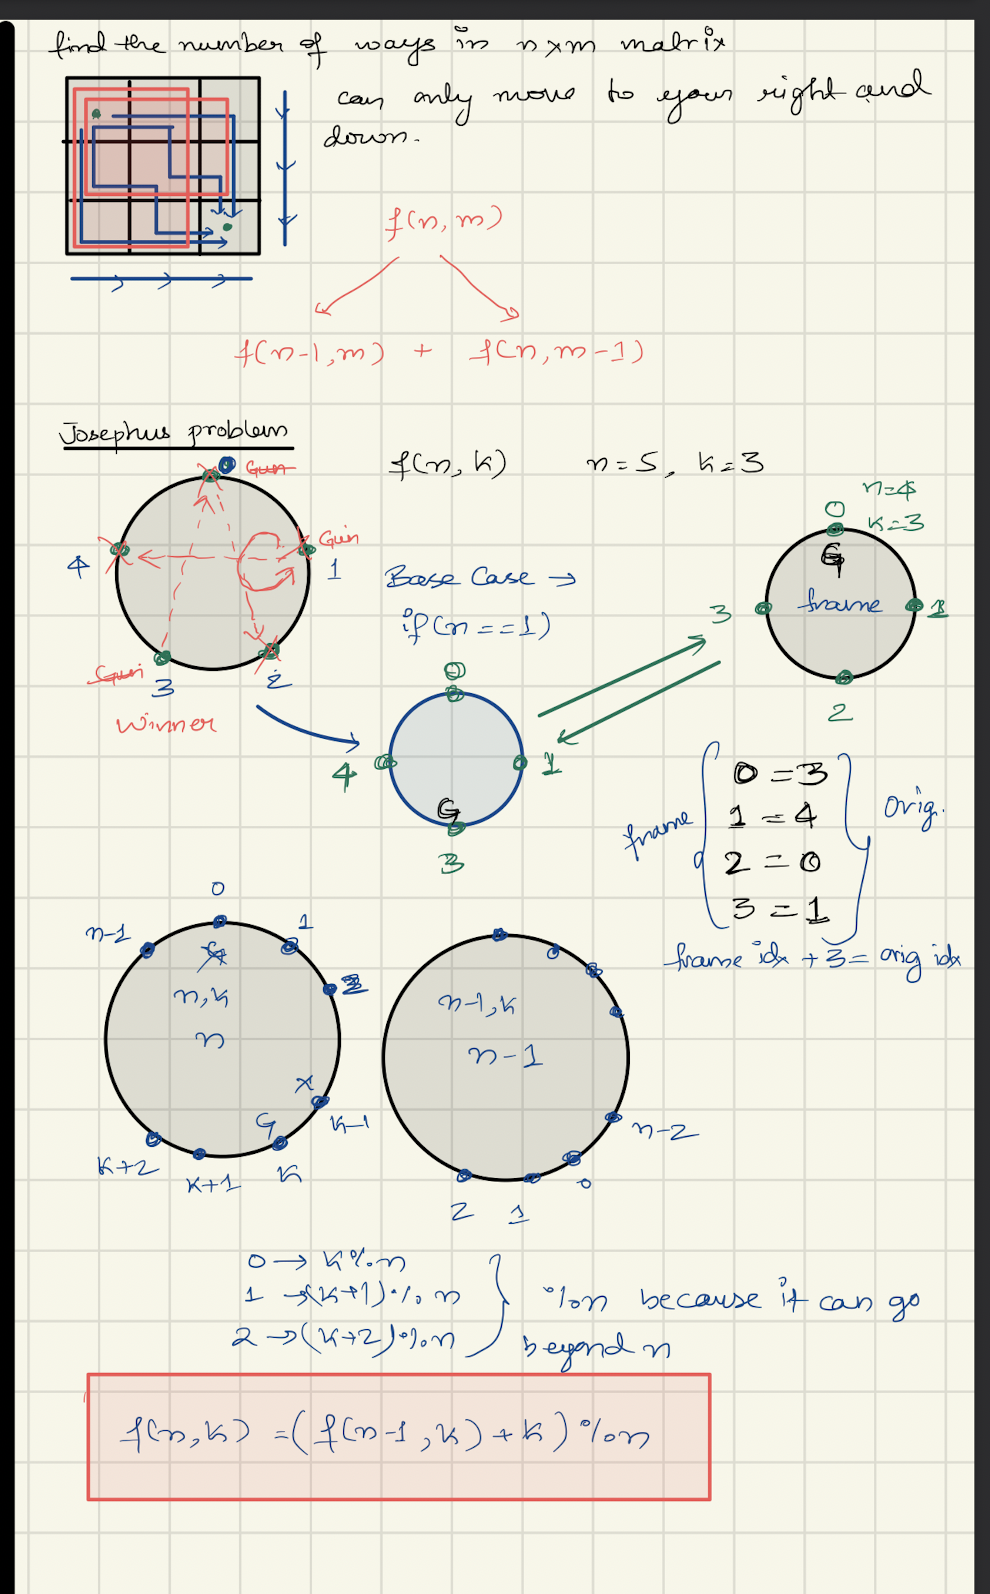 find the number of ways in n×m matrix
can only move to your right and
down.
f(n,m)
f(n-1,m) + f(n,m-1)
Josephus problem
f(n,k) n=5, k=3
0 Gun
4
Gun
1
Gun
3
2
Winner
Base Case →
if(n==1)
n=4
k=3
0
G
frame
3
1
2
0
4
1
G
3
frame
0 = 3
1 = 4
2 = 0
3 = 1
Orig.
frame idx + 3 = orig idx
0
n-1
1
G
2
n,k
n
x
k-1
G
k
k+1
k+2
n-1,k
n-1
n-2
0
1
2
0 → k%n
1 → (k+1)%n
2 → (k+2)%n
%n because it can go
beyond n
f(n,k) = (f(n-1,k)+k)%n